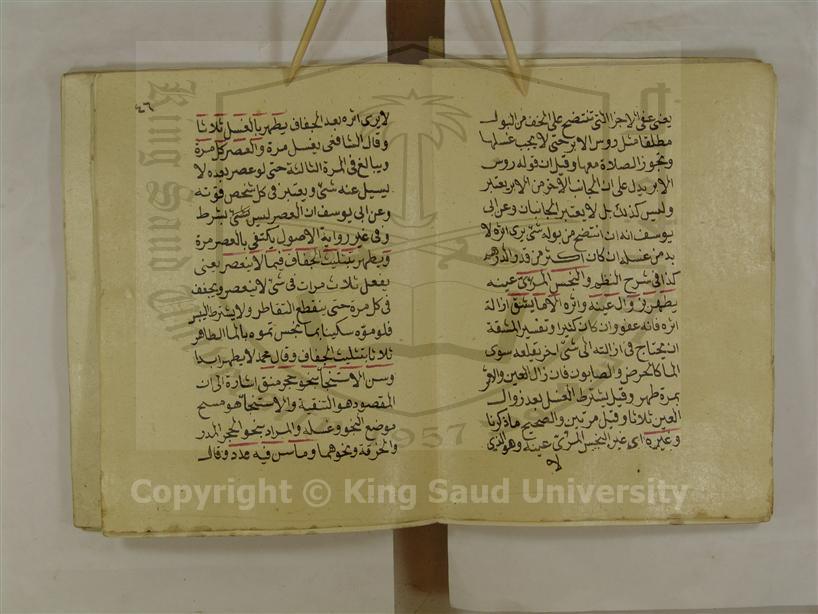 يعني عفي الاجزا التي تنتضح على الخف من البول
مطلقا مثل روس الابر حتى لا يجب غسلها
وتجوز الصلاة معها وقيل ان قوله روس
الابر يدل على ان الجانب الاخر من الابر يعتبر
وليس كذلك بل لا يعتبر الجانبان وعن ابى
يوسف انه ان انتضح من بوله شئ يرى اثره لا
بد من غسله ان كان اكثر من قدر الدرهم
كذا في شرح النظم والنجس المرئى عينه
يطهر بزوال عينه واثره الا ما يشق ازالة
اثره فانه عفو وان كان كثيرا وتفسير المشقة
ان يحتاج في ازالته الى شئ اخر يقلعه سوى
الما كالحرض والصابون فان زال العين والاثر
بمرة طهر وقيل يشترط الغسل بعد زوال
العين ثلاثا وقيل مرتين والصحيح ما ذكرنا
وغيره اى غير النجس المرئى عينه وهو الذى
لا
٤٦
لا يرى اثره بعد الجفاف يطهر بالغسل ثلاثا
وقال الشافعى يغسل مرة والعصر كل مرة
ويبالغ في المرة الثالثة حتى لو عصر بعده لا
يسيل عنه شئ ويعتبر في كل شخص قوته
وعن ابى يوسف ان العصر ليس بشرط
وفي غير رواية الاصول يكتفى بالعصر مرة
ويطهر بتثليث الجفاف فيما لا ينعصر يعنى
يغسل ثلاث مرات في شئ لا ينعصر ويجفف
في كل مرة حتى ينقطع التقاطر ولا يشترط اليبس
فلو موه سكينا بما نجس تموه بالما الطاهر
ثلاثا بتثليث الجفاف وقال محمد لا يطهر ابدا
وسن الاستنجا بنحو حجر منق اشارة الى ان
المقصود هو التنقية والاستنجا هو مسح
موضع النجو وغسله والمراد بنحو الحجر المدر
والخرقة ونحوهما وما سن فيه عدد وقال
Copyright © King Saud University
King Saud
1957